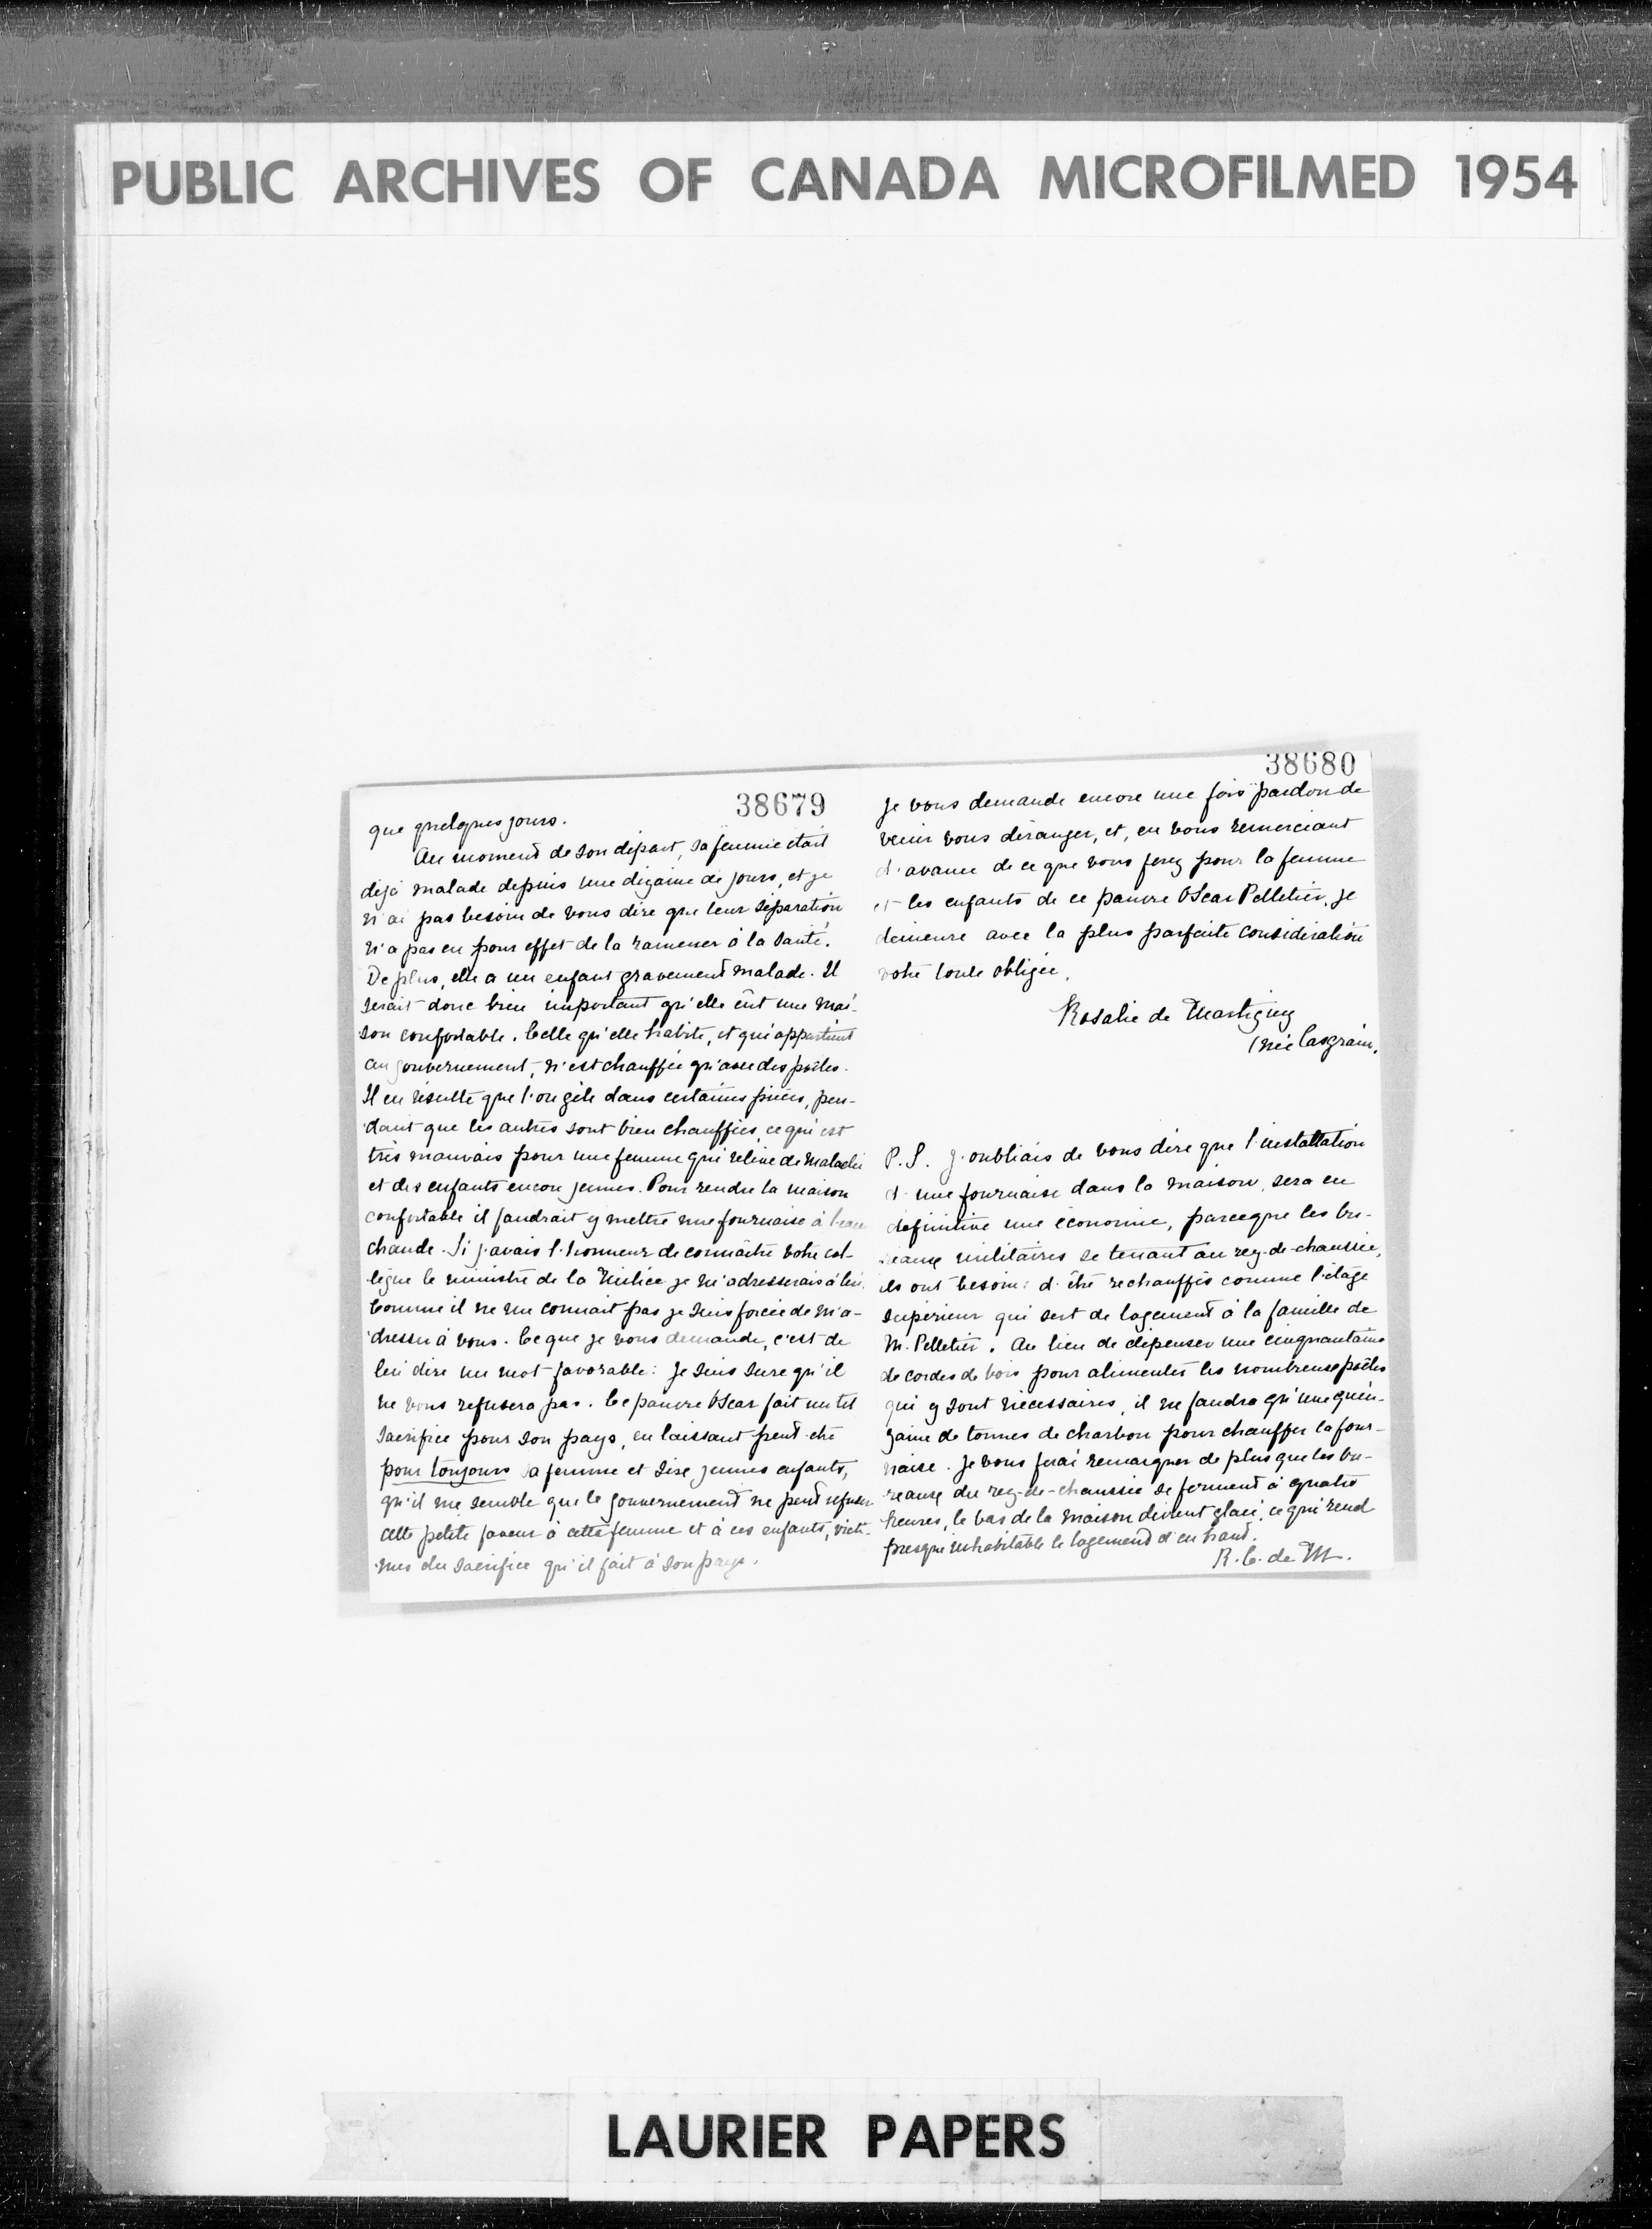 PUBLIC ARCHIVES OF CANADA MICROFILMED 1954
38679
que quelques jours.
Au moment de son départ, sa femme était
déjà malade depuis une dizaine de jours, et je
n'ai pas besoin de vous dire que leur séparation
n'a pas eu pour effet de la ramener à la santé.
De plus, elle a un enfant gravement malade. Il
serait donc bien important qu'elle eût une mai-
son confortable. Celle qu'elle habite, et qui appartient
au gouvernement, n'est chauffée qu'avec des poêles.
Il en résulte que l'on gèle dans certaines pièces, pen-
dant que les autres sont bien chauffées, ce qui est
très mauvais pour une femme qui relève de maladie
et des enfants encore jeunes. Pour rendre la maison
confortable il faudrait y mettre une fournaise à l'eau
chaude. Si j'avais l'honneur de connaître votre col-
lègue le ministre de la Milice je m'adresserais à lui.
Comme il ne me connait pas je suis forcée de m'a-
dresser à vous. Ce que je vous demande, c'est de
lui dire un mot favorable: je suis sure qu'il
ne vous refusera pas. Ce pauvre Oscar fait un tel
sacrifice pour son pays, en laissant peut-être
pour toujours sa femme et ses jeunes enfants,
qu'il me semble que le gouvernement ne peut refuser
cette petite faveur à cette femme et à ces enfants, victi-
mes du sacrifice qu'il fait à son pays.
38680
Je vous demande encore une fois pardon de
venir vous déranger, et, en vous remerciant
d'avance de ce que vous ferez pour la femme
et les enfants de ce pauvre Oscar Pelletier, je
demeure avec la plus parfaite considération
votre toute obligée,
Rosalie de Martigny
(née Casgrain.
P.S. J'oubliais de vous dire que l'installation
d'une fournaise dans la maison, sera en
définitive une économie, parceque les bu-
reaux militaires se tenant au rez-de-chaussée,
ils ont besoin d'être rechauffés comme l'étage
supérieur qui sert de logement à la famille de
M. Pelletier. Au lieu de dépenser une cinquantaine
de cordes de bois pour alimenter les nombreuse poêles
qui y sont nécessaires, il ne faudra qu'une quin-
zaine de tonnes de charbon pour chauffer la four-
naise. Je vous ferai remarquer de plus que les bu-
reaux du rez-de-chaussée se ferment à quatre
heures, le bas de la maison devient glacé, ce qui rend
presque inhabitable le logement d'en haut.
R. C. de M.
LAURIER PAPERS